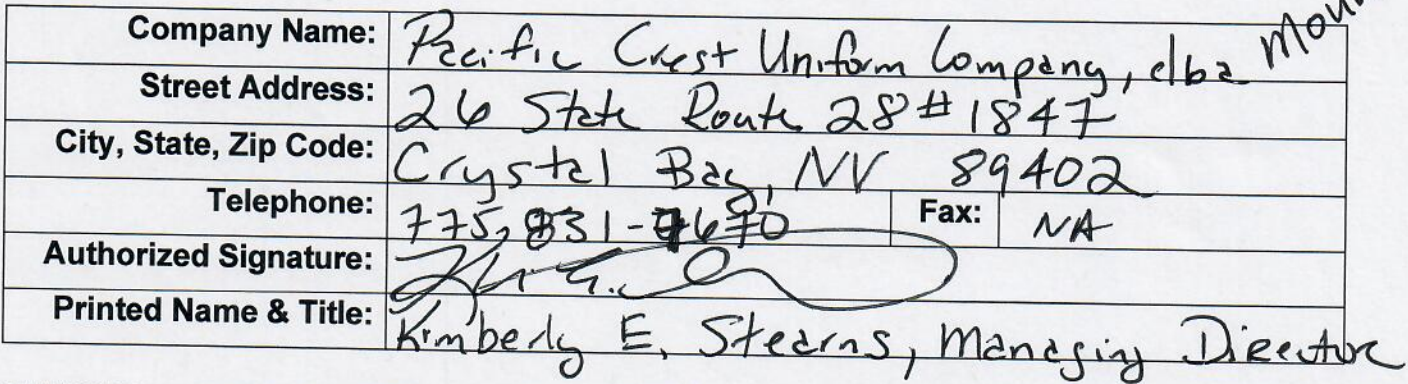 Company Name: Pacific Crest Uniform Company, dba
Street Address: 26 State Route 28 # 1847
City, State, Zip Code: Crystal Bay, NV 89402
Telephone: 775, 831- Fax: NA
Authorized Signature:
Printed Name & Title: Kimberly E. Stearns, Managing Director